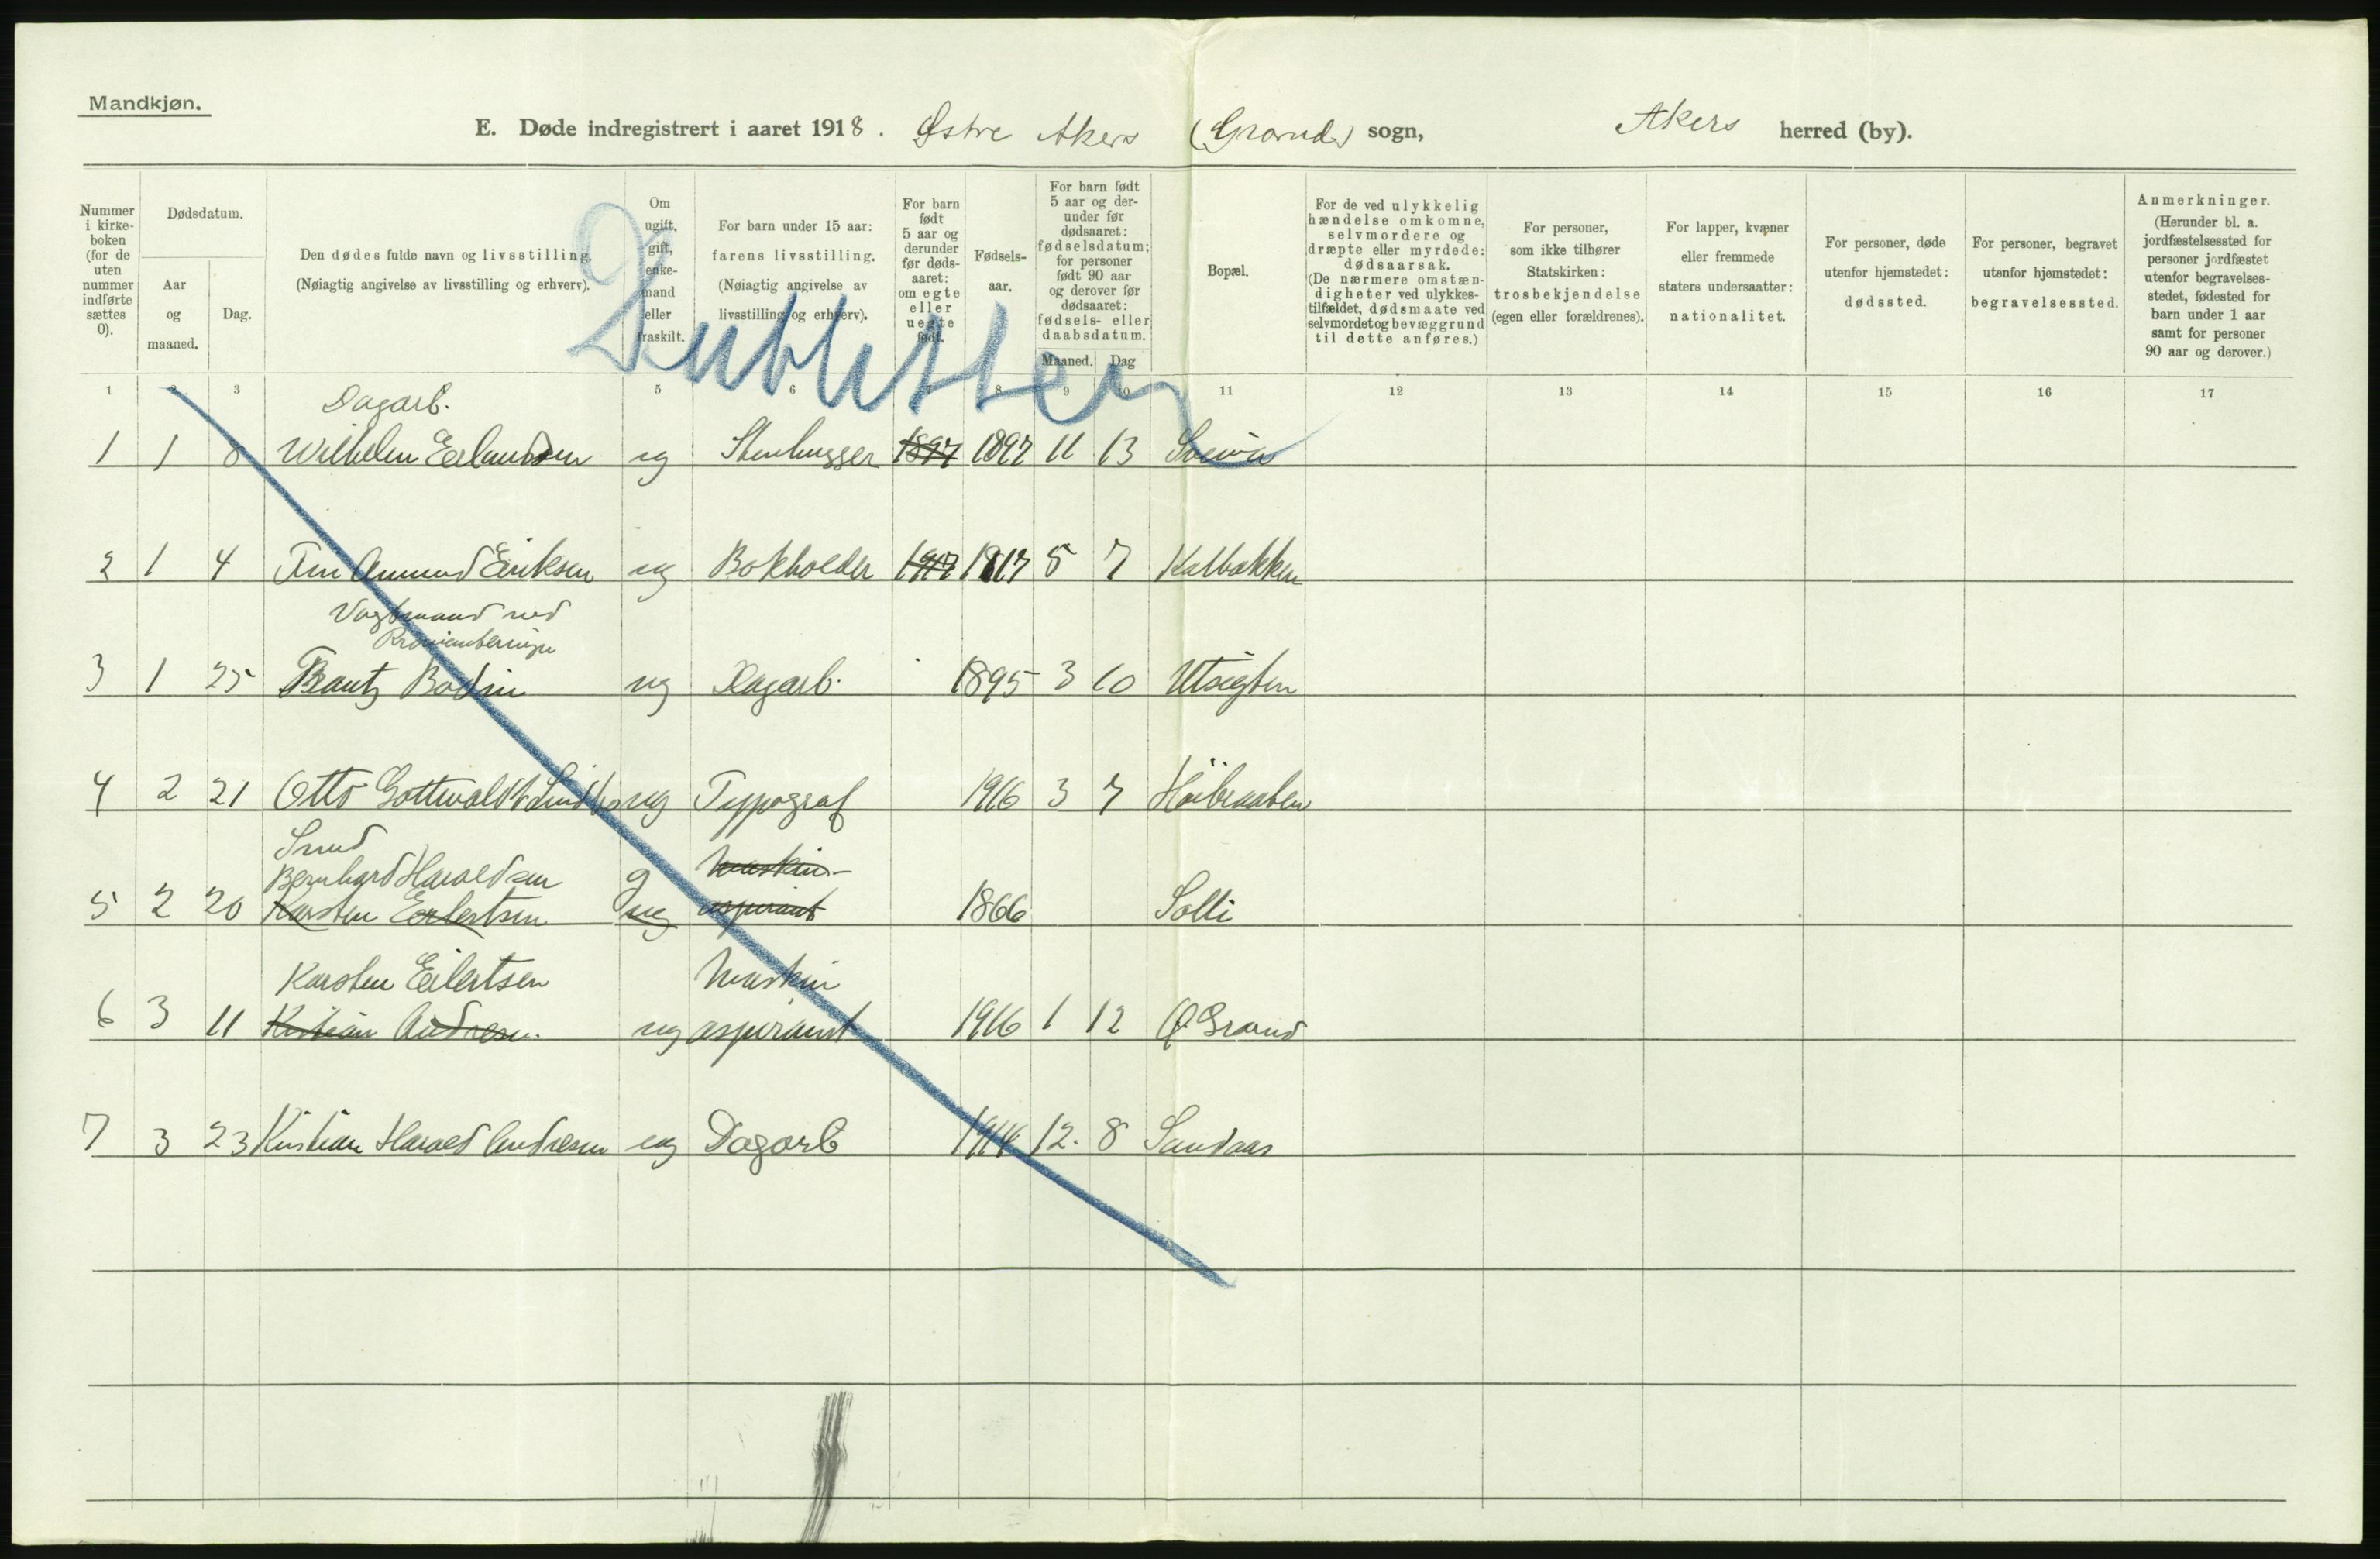 Mandkjøn.
E. Døde indregistrert i aaret 1918. Østre Akers (Grorud) sogn, Akers herred (by).
Nummer i kirke-boken (for de uten nummer indførte sættes 0).
Dødsdatum.
Aar og maaned.
Dag.
Den dødes fulde navn og livsstilling.
(Nøiagtig angivelse av livsstilling og erhverv).
Om ugift, gift, enke-mand eller fraskilt.
For barn under 15 aar: farens livsstilling.
(Nøiagtig angivelse av livsstilling og erhverv).
For barn født 5 aar og derunder før døds-aaret: om egte eller uegte født.
Fødsels-aar.
For barn født 5 aar og der-under før dødsaaret: fødselsdatum; for personer født 90 aar og derover før dødsaaret: fødsels- eller daabsdatum.
Maaned. Dag
Bopæl.
For de ved ulykkelig hændelse omkomne, selvmordere og dræpte eller myrdede: dødsaarsak.
(De nærmere omstæn-digheter ved ulykkes-tilfældet, dødsmaate ved selvmordet og bevæggrund til dette anføres.)
For personer, som ikke tilhører Statskirken: trosbekjendelse (egen eller forældrenes).
For lapper, kvæner eller fremmede staters undersaatter: nationalitet.
For personer, døde utenfor hjemstedet: dødssted.
For personer, begravet utenfor hjemstedet: begravelsessted.
Anmerkninger.
(Herunder bl. a. jordfæstelsessted for personer jordfæstet utenfor begravelses-stedet, fødested for barn under 1 aar samt for personer 90 aar og derover.)
1 2 3 5 6 7 8 9 10 11 12 13 14 15 16 17
Dubletter
Dagarb.
1 1 8 Wilhelm Erlandsen ug Stenhugger 1897 1897 11 13
2 1 4 Amund Eriksen ug Bokholder 1917 1917 5 7 Kalbakken
Vagtmand ved
3 1 25 Frantz Bodin ug Dagarb. 1895 3 10 Utsigten
4 2 21 Otto Gottwaldt ug Typograf 1916 3 7 Høibraaten
Smed
Bernhard Haraldsen g Maskin-
5 2 20 Karsten Eilertsen ug aspirant 1866 Solli
Karsten Eilertsen Maskin
6 3 11 Kristian Andresen. ug aspirant 1916 1 12 Ø Grorud
7 3 23 Kristian Harald Andresen ug Dagarb 1914 12. 8 Sandaas